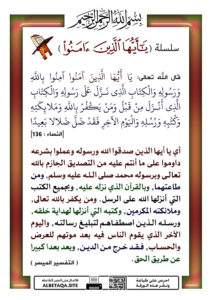 بِسْمِ اللَّهِ الرَّحْمَٰنِ الرَّحِيمِ
سلسلة ( يَٰٓأَيُّهَا ٱلَّذِينَ ءَامَنُوٓا۟ )
قال الله تعالى: يَا أَيُّهَا الَّذِينَ آمَنُوا آمِنُوا بِاللَّهِ
وَرَسُولِهِ وَالْكِتَابِ الَّذِي نَزَّلَ عَلَى رَسُولِهِ وَالْكِتَابِ
الَّذِي أَنْزَلَ مِنْ قَبْلُ وَمَنْ يَكْفُرْ بِاللَّهِ وَمَلَائِكَتِهِ
وَكُتُبِهِ وَرُسُلِهِ وَالْيَوْمِ الْآخِرِ فَقَدْ ضَلَّ ضَلَالًا بَعِيدًا
[النساء : 136]
أي يا أيها الذين صدقوا الله ورسوله وعملوا بشرعه
داوموا على ما أنتم عليه من التصديق الجازم بالله
تعالى وبرسوله محمد صلى الله عليه وسلم، ومن
طاعتهما، وبالقرآن الذي نزله عليه، وبجميع الكتب
التي أنزلها الله على الرسل. ومن يكفر بالله تعالى،
وملائكته المكرمين، وكتبه التي أنزلها لهداية خلقه،
ورسله الذين اصطفاهم لتبليغ رسالته، واليوم
الآخر الذي يقوم الناس فيه بعد موتهم للعرض
والحساب، فقد خرج من الدين، وبعد بعدا كبيرا
عن طريق الحق.
( التفسير الميسر )
ALBETAQA.SITE
احرص على طباعة
ونشر هذه الورقة